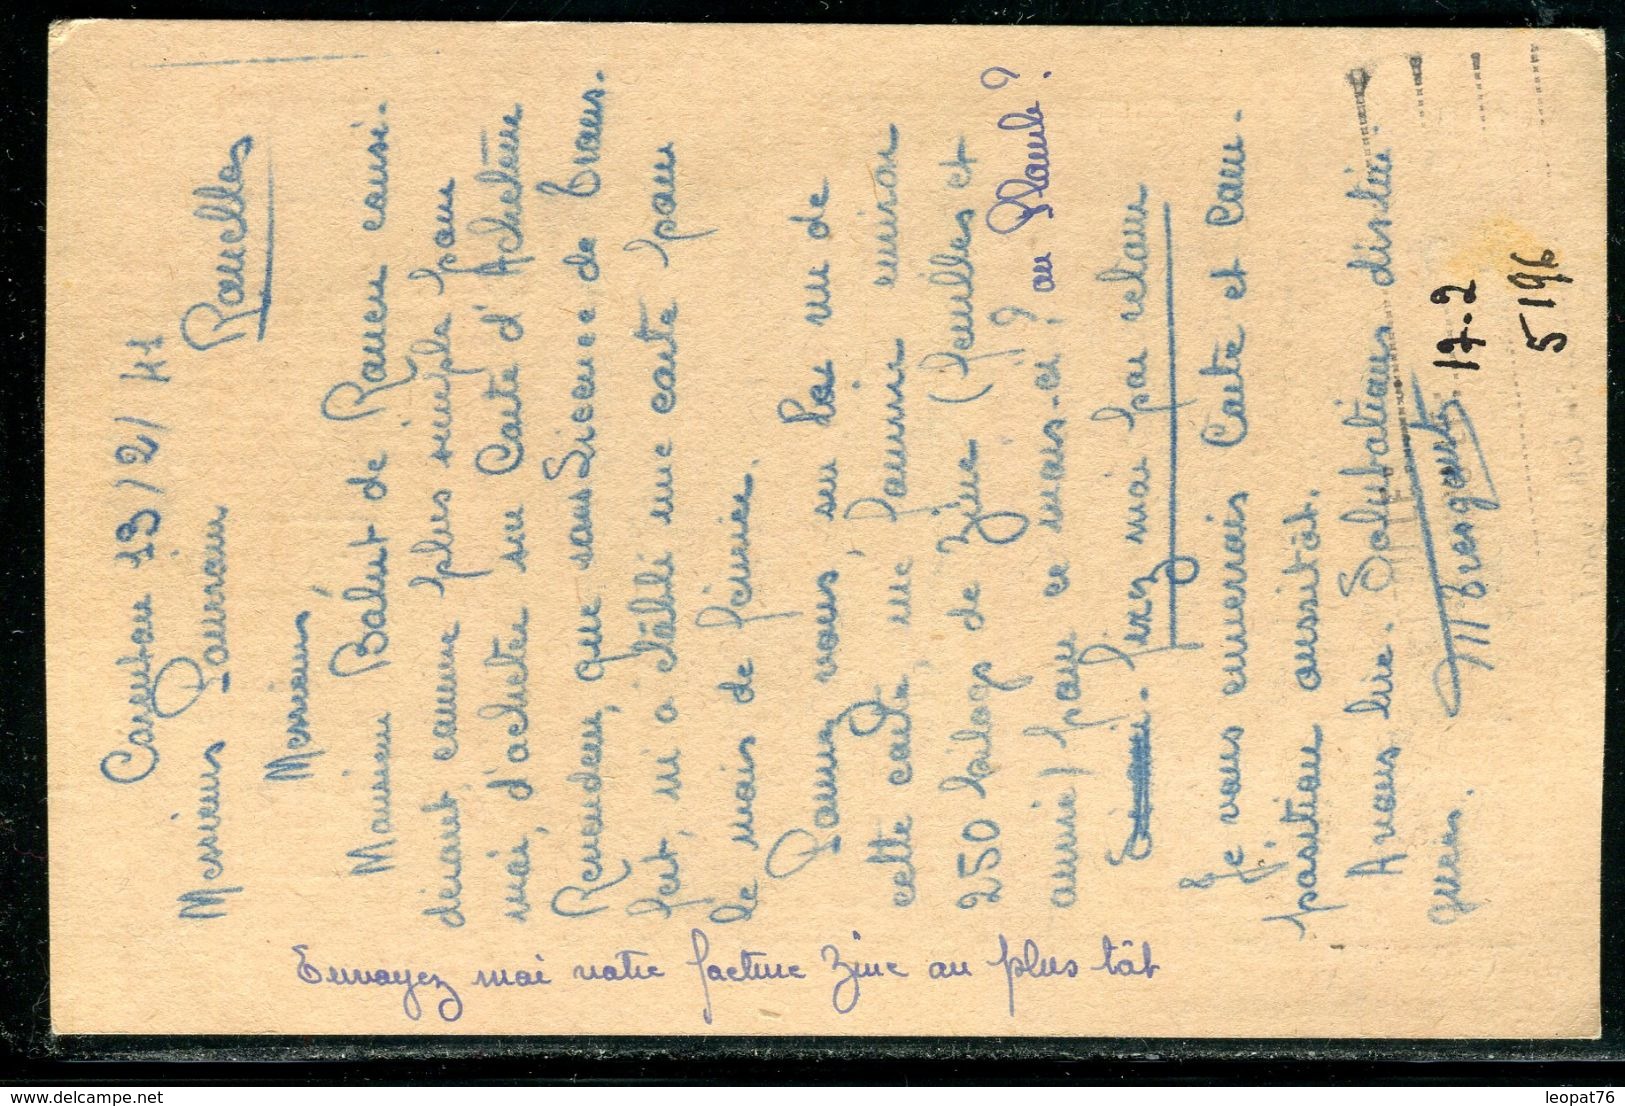 Carentan 13/2/41
Messieurs
Rouelles
Messieurs
Monsieur Balut de Rouen consi-
dérant comme plus simple pour
moi, d'acheter sur Carte d'Acheteur
Revendeur, que sous Licence de Trans.
fert, m'a établi une carte pour
le mois de février.
Pouvez vous sur le vu de
cette carte, me fournir environ
250 kilogs de zinc (feuilles et
pour ce mois-ci ? ou Plomb ?
fixez moi par retour
Je vous enverrais Carte et Pou-
position aussitôt.
A vous lire. Salutations distin-
guées.
17-2
5196
Envoyez moi votre facture Zinc au plus tôt
leopat76